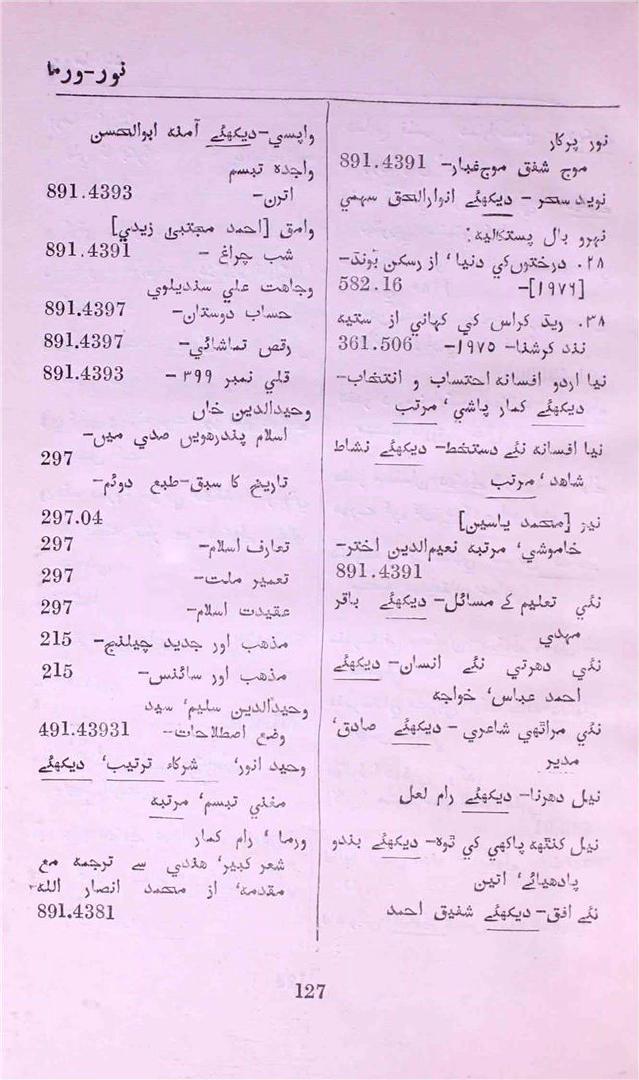 نور-ورما
نور پرکار
موج شفق موج غبار- 891.4391
نوید سحر - دیکھئے انوارالحق سہمی
نہرو بال پستکالیہ:
۲۸. درختوں کي دنیا' از رسکن بونڈ-
[۱۹۷۶]- 582.16
۳۸. ریڈ کراس کي کہاني از ستیه
نند کرشنا- ۱۹۷۵- 361.506
نیا اردو افسانه احتساب و انتخاب-
دیکھئے کمار پاشي' مرتب
نیا افسانه نئے دستخط- دیکھئے نشاط
شاهد' مرتب
نیر [محمد یاسین]
خاموشي' مرتبه نعیم الدین اختر-
891.4391
نئي تعلیم کے مسائل- دیکھئے باقر
مهدي
نئي دهرتي نئے انسان- دیکھئے
احمد عباس' خواجه
نئي مراٹھي شاعري - دیکھئے صادق'
مدیر
نیل دهرنا- دیکھئے رام لعل
نیل کنٹھ پاکھي کي ٹوہ- دیکھئے بندو
پادهیائے' اتین
نئے افق- دیکھئے شفیق احمد
واپسي- دیکھئے آمنه ابوالحسن
واجدہ تبسم
اترن- 891.4393
وامق [احمد مجتبیٰ زیدي]
شب چراغ - 891.4391
وجاهت علي سندیلوي
حساب دوستاں- 891.4397
رقص تماشائي- 891.4397
قلي نمبر ۳۹۹ - 891.4393
وحیدالدین خاں
اسلام پندرهویں صدي میں-
297
تاریخ کا سبق- طبع دوئم-
297.04
تعارف اسلام- 297
تعمیر ملت- 297
عقیدت اسلام- 297
مذهب اور جدید چیلنج- 215
مذهب اور سائنس- 215
وحیدالدین سلیم' سید
وضع اصطلاحات- 491.43931
وحید انور' شرکاء ترتیب' دیکھئے
مغني تبسم' مرتبه
ورما' رام کمار
شعر کبیر' هندي سے ترجمه مع
مقدمه' از محمد انصار الله-
891.4381
127